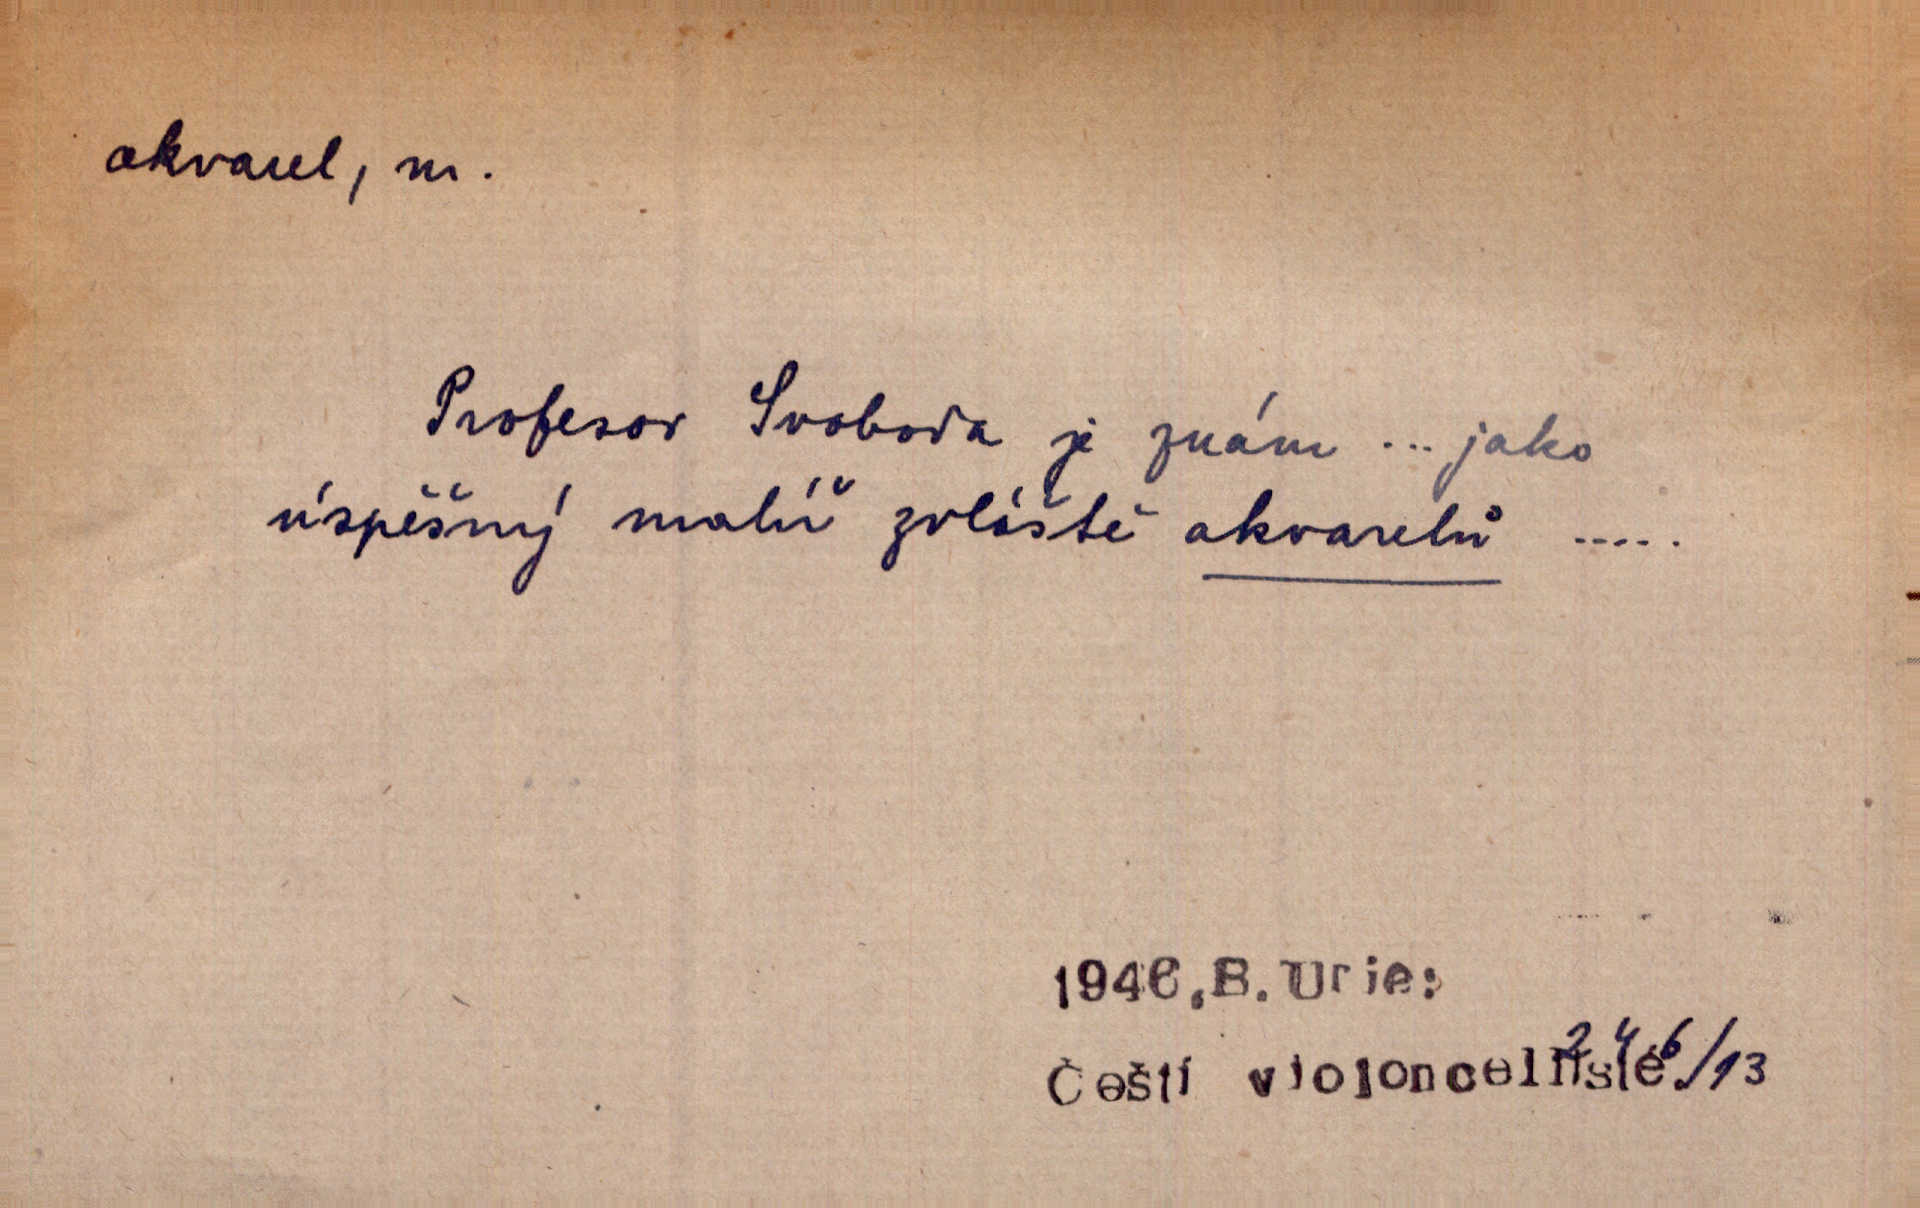 akvarel, m.
Profesor Svoboda je znám ... jako
úspěšný malíř zvláště akvarelů .....
1946, B. Urie:
Čeští violoncellisté 246/13